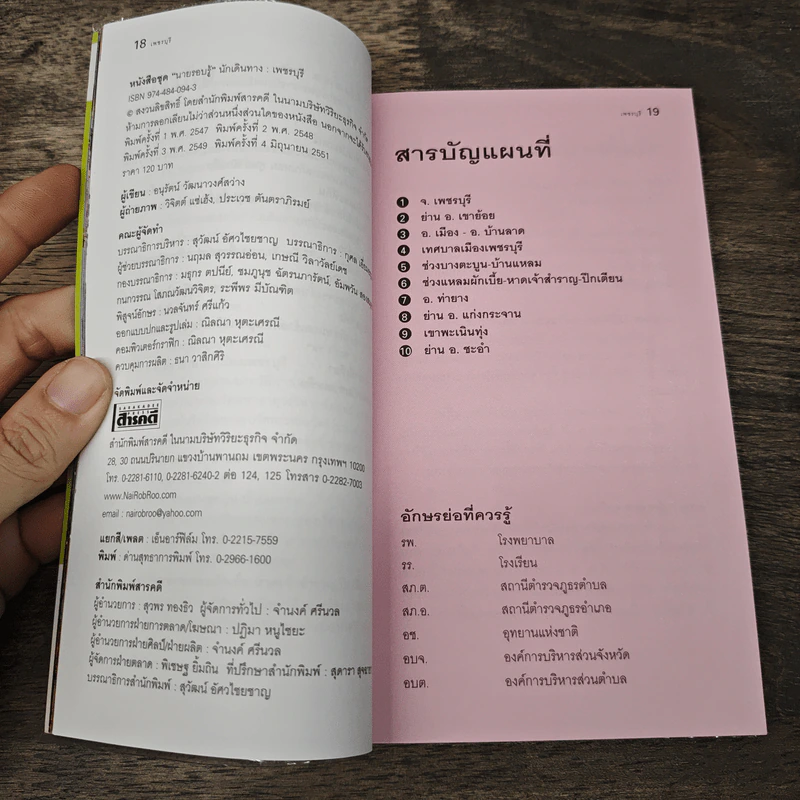 18 เพชรบุรี
หนังสือชุด "นายรอบรู้" นักเดินทาง : เพชรบุรี
ISBN 974-484-094-3
© สงวนลิขสิทธิ์ โดยสำนักพิมพ์สารคดี ในนามบริษัทวิริยะธุรกิจ จำกัด
ห้ามการลอกเลียนไม่ว่าส่วนหนึ่งส่วนใดของหนังสือ นอกจากจะได้รับ
พิมพ์ครั้งที่ 1 พ.ศ. 2547 พิมพ์ครั้งที่ 2 พ.ศ. 2548
พิมพ์ครั้งที่ 3 พ.ศ. 2549 พิมพ์ครั้งที่ 4 มิถุนายน 2551
ราคา 120 บาท
ผู้เขียน : อนุรัตน์ วัฒนาวงศ์สว่าง
ผู้ถ่ายภาพ : วิจิตต์ แซ่เฮ้ง, ประเวช ตันตราภิรมย์
คณะผู้จัดทำ
บรรณาธิการบริหาร : สุวัฒน์ อัศวไชยชาญ บรรณาธิการ : กุศล
ผู้ช่วยบรรณาธิการ : นฤมล สุวรรณอ่อน, เกษณี วิลาวัลย์เดช
กองบรรณาธิการ : มธุกร ตปนีย์, ชมภูนุช ฉัตรนภารัตน์, อัมพวัน
กนกวรรณ โสภณวัฒนวิจิตร, ระพีพร มีบัณฑิต
พิสูจน์อักษร : นวลจันทร์ ศรีแก้ว
ออกแบบปกและรูปเล่ม : ณิลณา หุตะเศรณี
คอมพิวเตอร์กราฟิก : ณิลณา หุตะเศรณี
ควบคุมการผลิต : ธนา วาสิกศิริ
จัดพิมพ์และจัดจำหน่าย
SARAKADEE PRESS
สารคดี
สำนักพิมพ์สารคดี ในนามบริษัทวิริยะธุรกิจ จำกัด
28, 30 ถนนปรินายก แขวงบ้านพานถม เขตพระนคร กรุงเทพฯ 10200
โทร. 0-2281-6110, 0-2281-6240-2 ต่อ 124, 125 โทรสาร 0-2282-7003
www.NaiRobRoo.com
email : nairobroo@yahoo.com
แยกสี/เพลต : เอ็นอาร์ฟิล์ม โทร. 0-2215-7559
พิมพ์ : ด่านสุทธาการพิมพ์ โทร. 0-2966-1600
สำนักพิมพ์สารคดี
ผู้อำนวยการ : สุวพร ทองธิว ผู้จัดการทั่วไป : จำนงค์ ศรีนวล
ผู้อำนวยการฝ่ายการตลาด/โฆษณา : ปฏิมา หนูไชยะ
ผู้อำนวยการฝ่ายศิลป์/ฝ่ายผลิต : จำนงค์ ศรีนวล
ผู้จัดการฝ่ายตลาด : พิเชษฐ ยิ้มถิน ที่ปรึกษาสำนักพิมพ์ : สุดารา
บรรณาธิการสำนักพิมพ์ : สุวัฒน์ อัศวไชยชาญ
เพชรบุรี 19
สารบัญแผนที่
1 จ. เพชรบุรี
2 ย่าน อ. เขาย้อย
3 อ. เมือง - อ. บ้านลาด
4 เทศบาลเมืองเพชรบุรี
5 ช่วงบางตะบูน-บ้านแหลม
6 ช่วงแหลมผักเบี้ย-หาดเจ้าสำราญ-ปึกเตียน
7 อ. ท่ายาง
8 ย่าน อ. แก่งกระจาน
9 เขาพะเนินทุ่ง
10 ย่าน อ. ชะอำ
อักษรย่อที่ควรรู้
รพ. โรงพยาบาล
รร. โรงเรียน
สภ.ต. สถานีตำรวจภูธรตำบล
สภ.อ. สถานีตำรวจภูธรอำเภอ
อช. อุทยานแห่งชาติ
อบจ. องค์การบริหารส่วนจังหวัด
อบต. องค์การบริหารส่วนตำบล